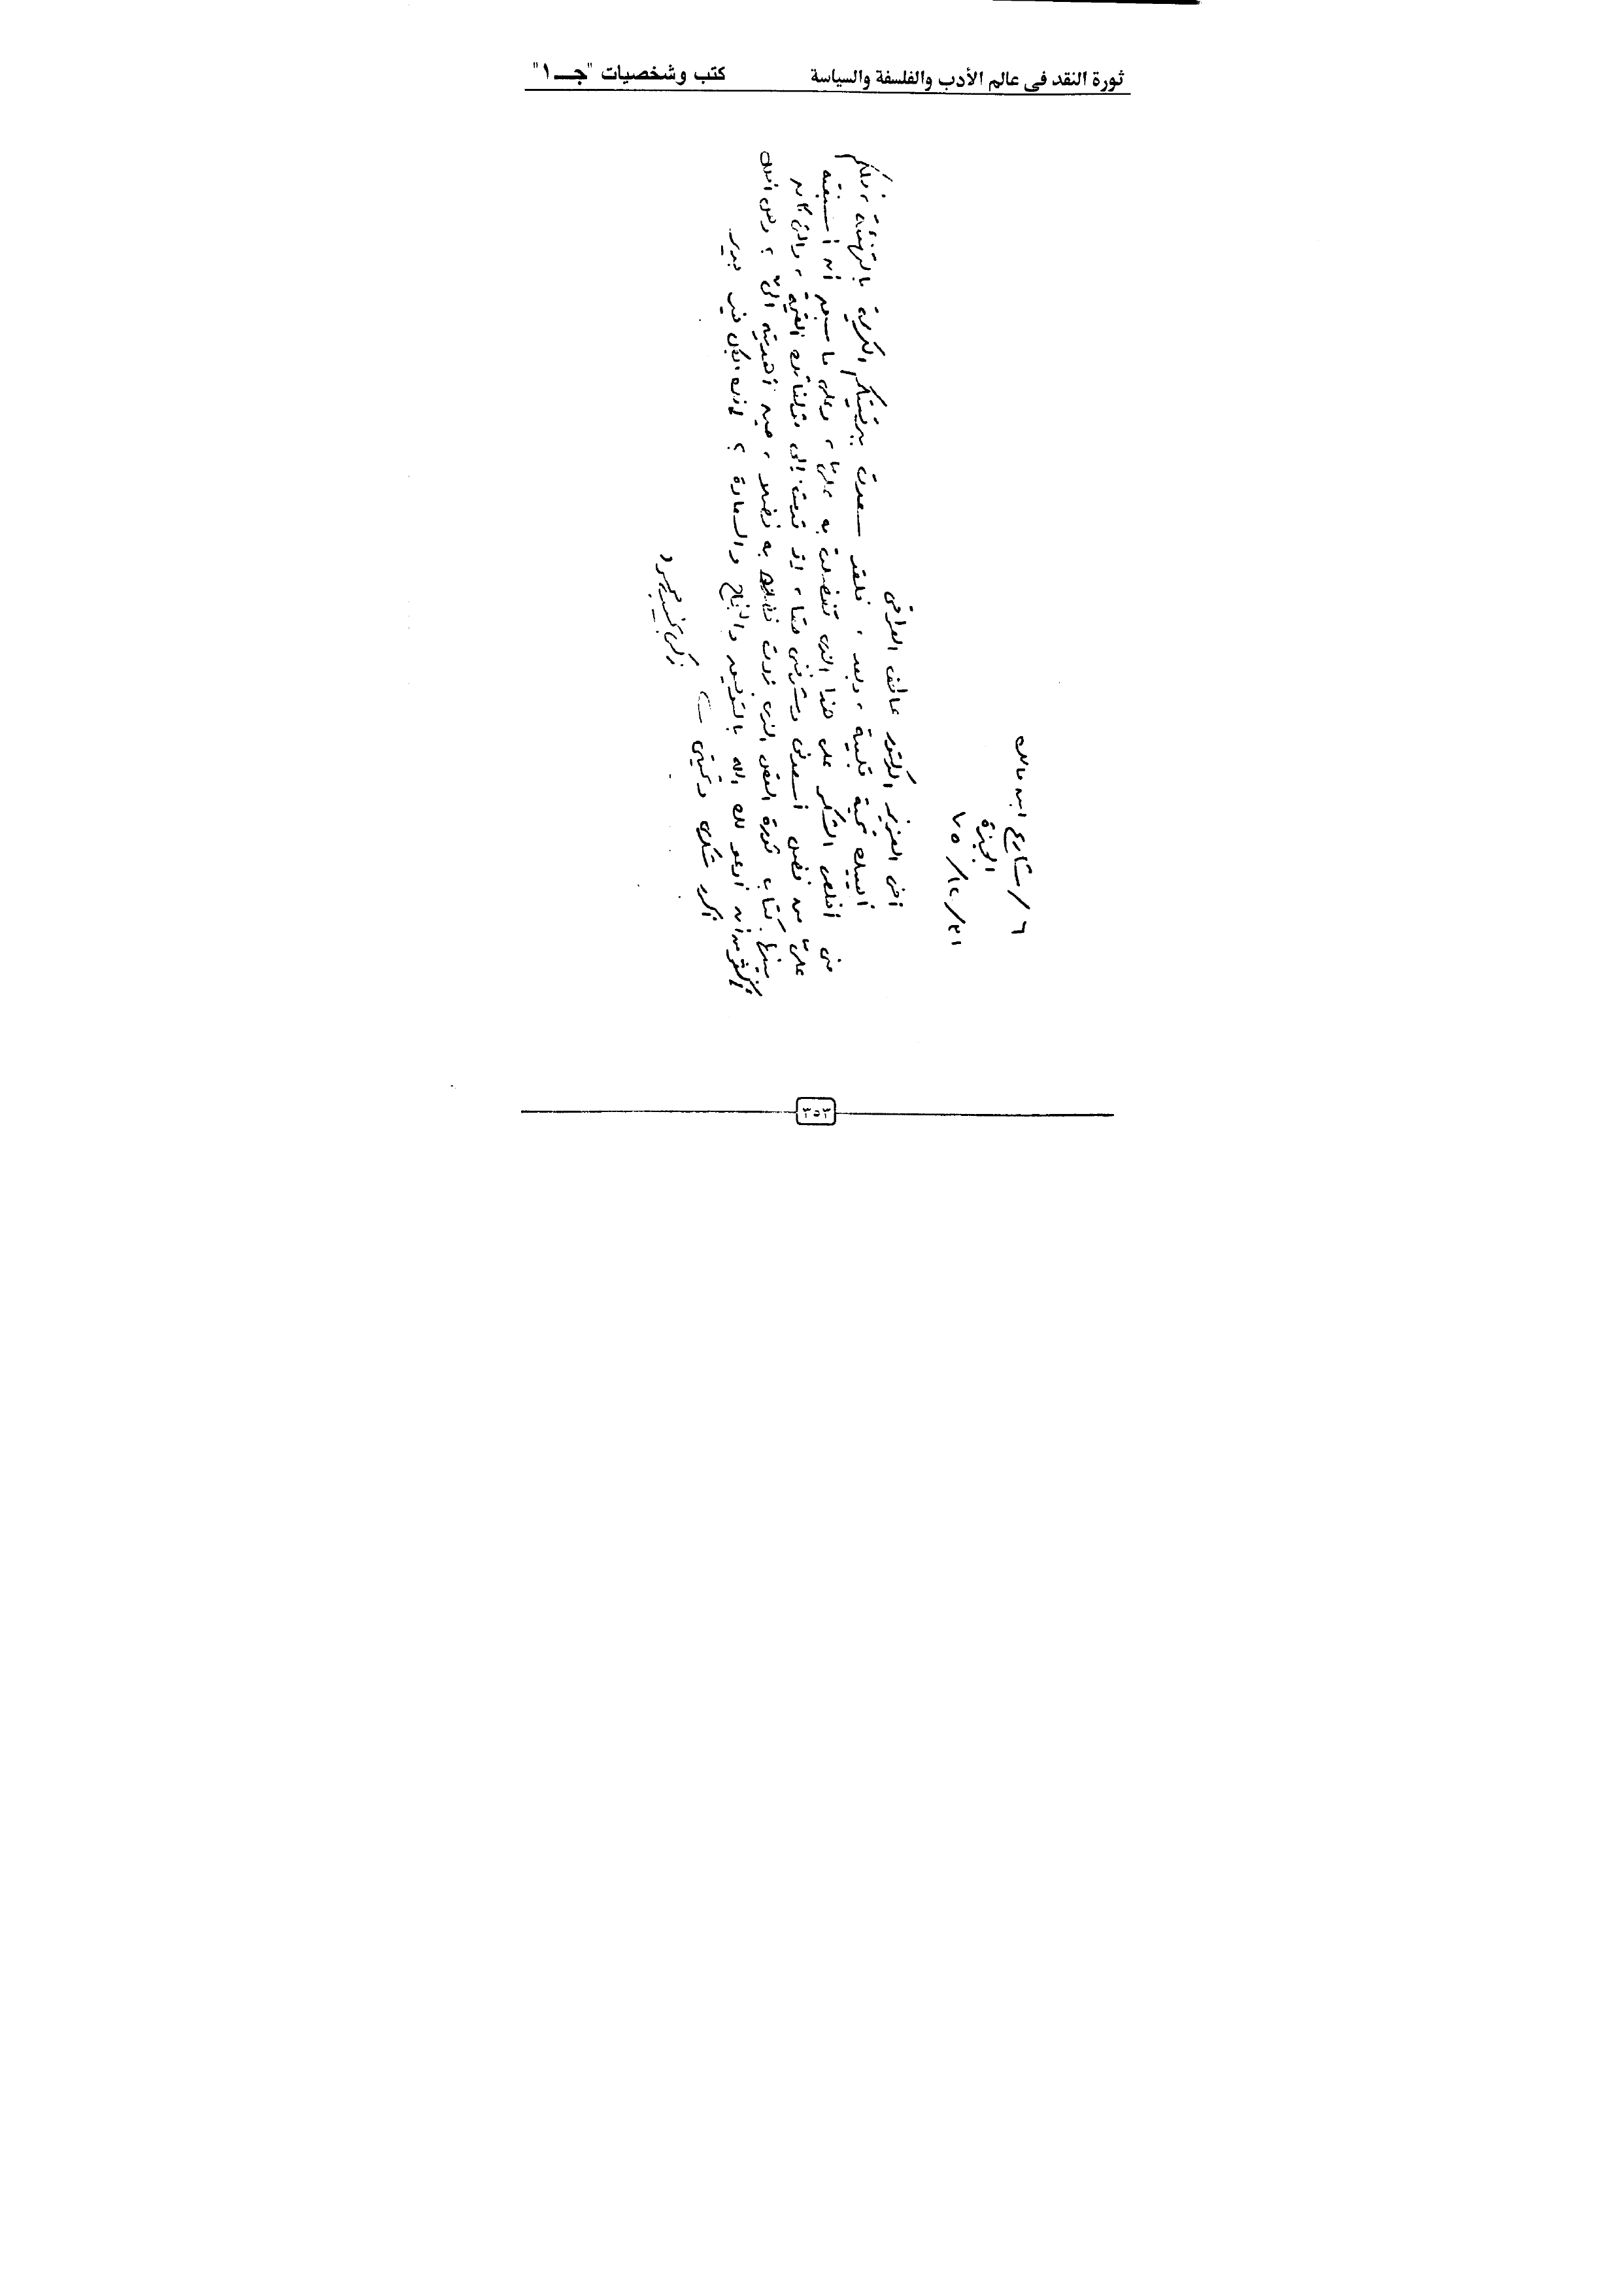 ثورة النقد فى عالم الأدب والفلسفة والسياسة كتب وشخصيات "جـ ١"
٦ / شارع ابن مالك
الجيزة
٧٥/١٢/٣١
أخى العزيز الدكتور عاطف العراقى
أحييك تحية قلبية ، وبعد ، فلقد سعدت ببرقيتكم الكريمة بالتهنئة ، فلكم
منى أخلص الشكر على هذا الذى تفضلت به علىّ ، وعلى ما سبق أن أسبغته
علىّ من فضل أسعدنى وشرفنى معًا ، إذ قدمت إلى مؤلفاتك القيمة ، والتى كان
بينها كتاب ثورة العقل الذى زدت به فضلا ، حين أهديته إلىّ ؛ وهل أملك
أكثر من أن أدعو لك الله بالتوفيق والنجاح والسعادة ؟ لأنك بكل خير جدير .
أكرر شكرى وتحيتى
زكى نجيب محمود
٣٥٣